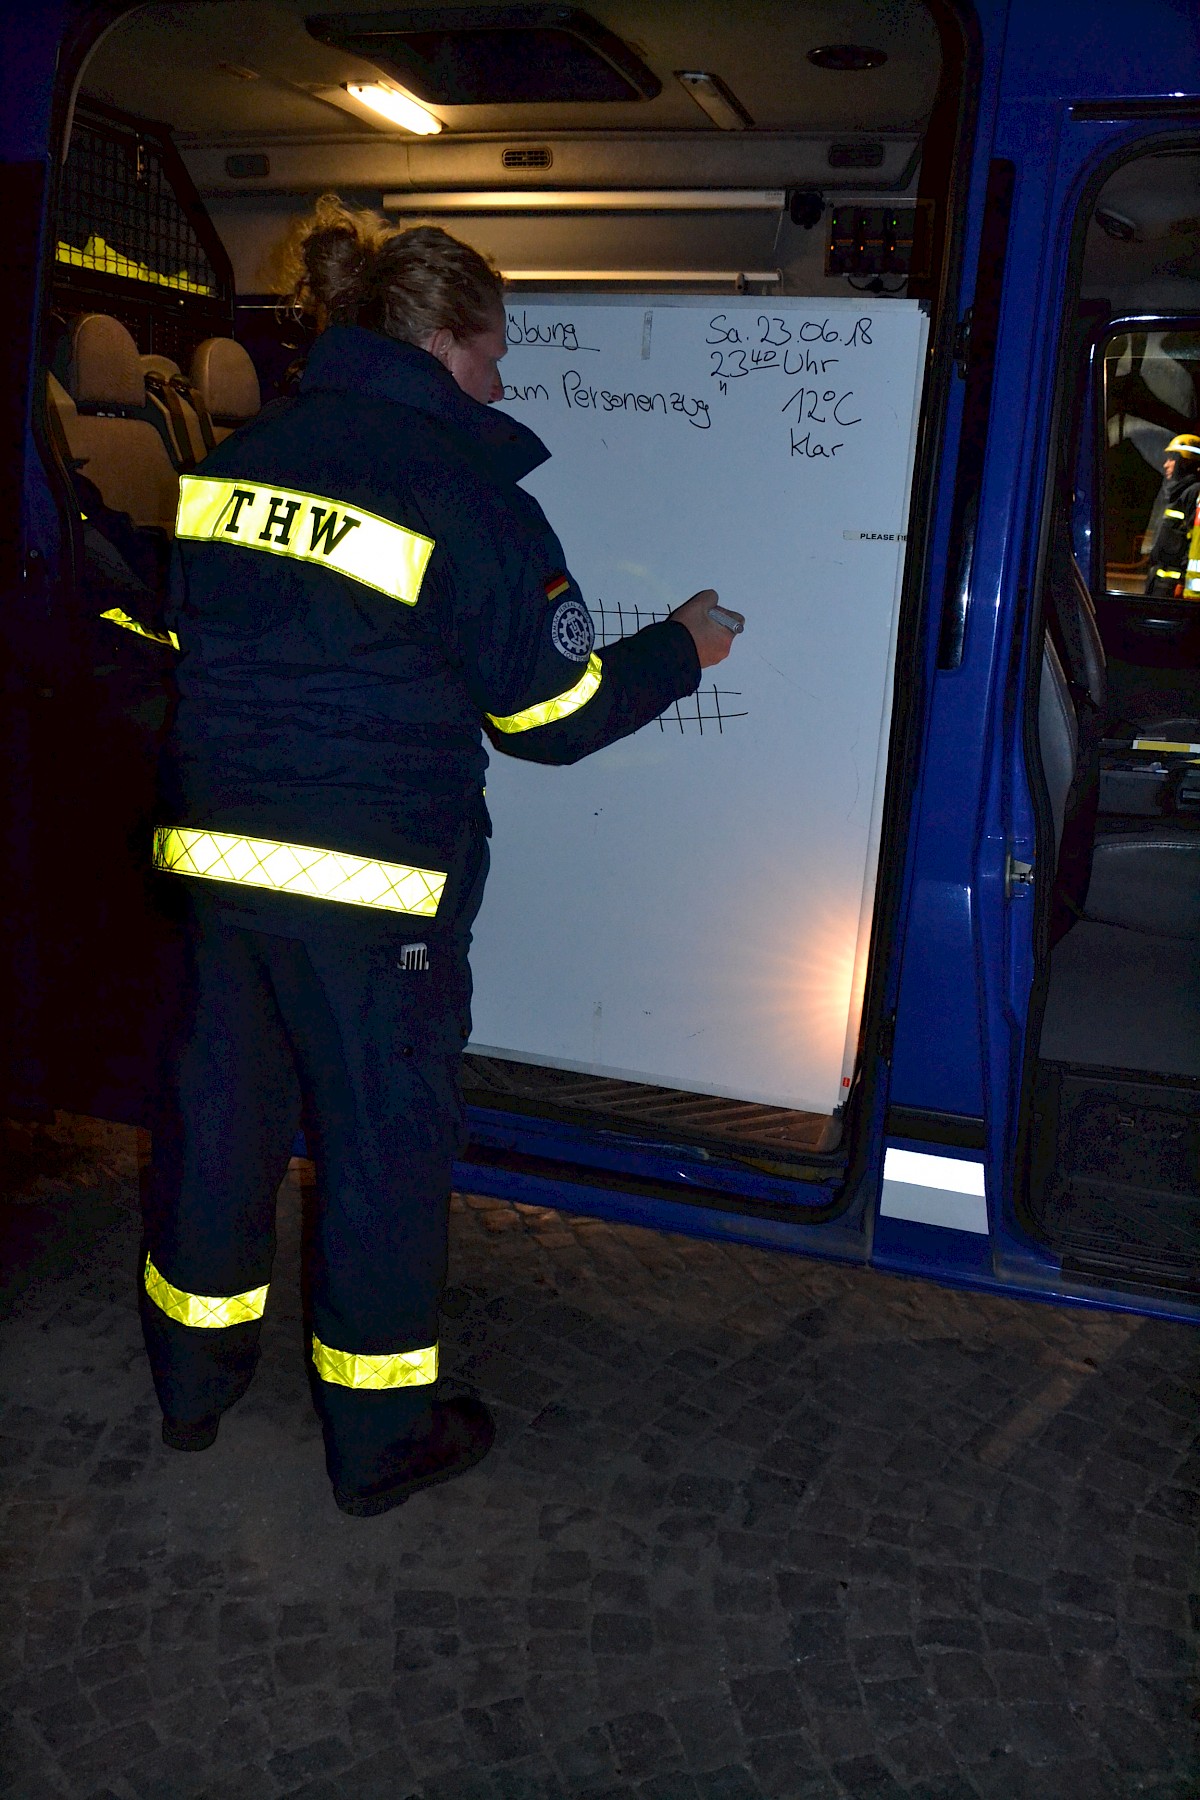 übung
Sa. 23.06.18
23⁴⁰ Uhr
am Personenzug"
12°C
klar
PLEASE
THW